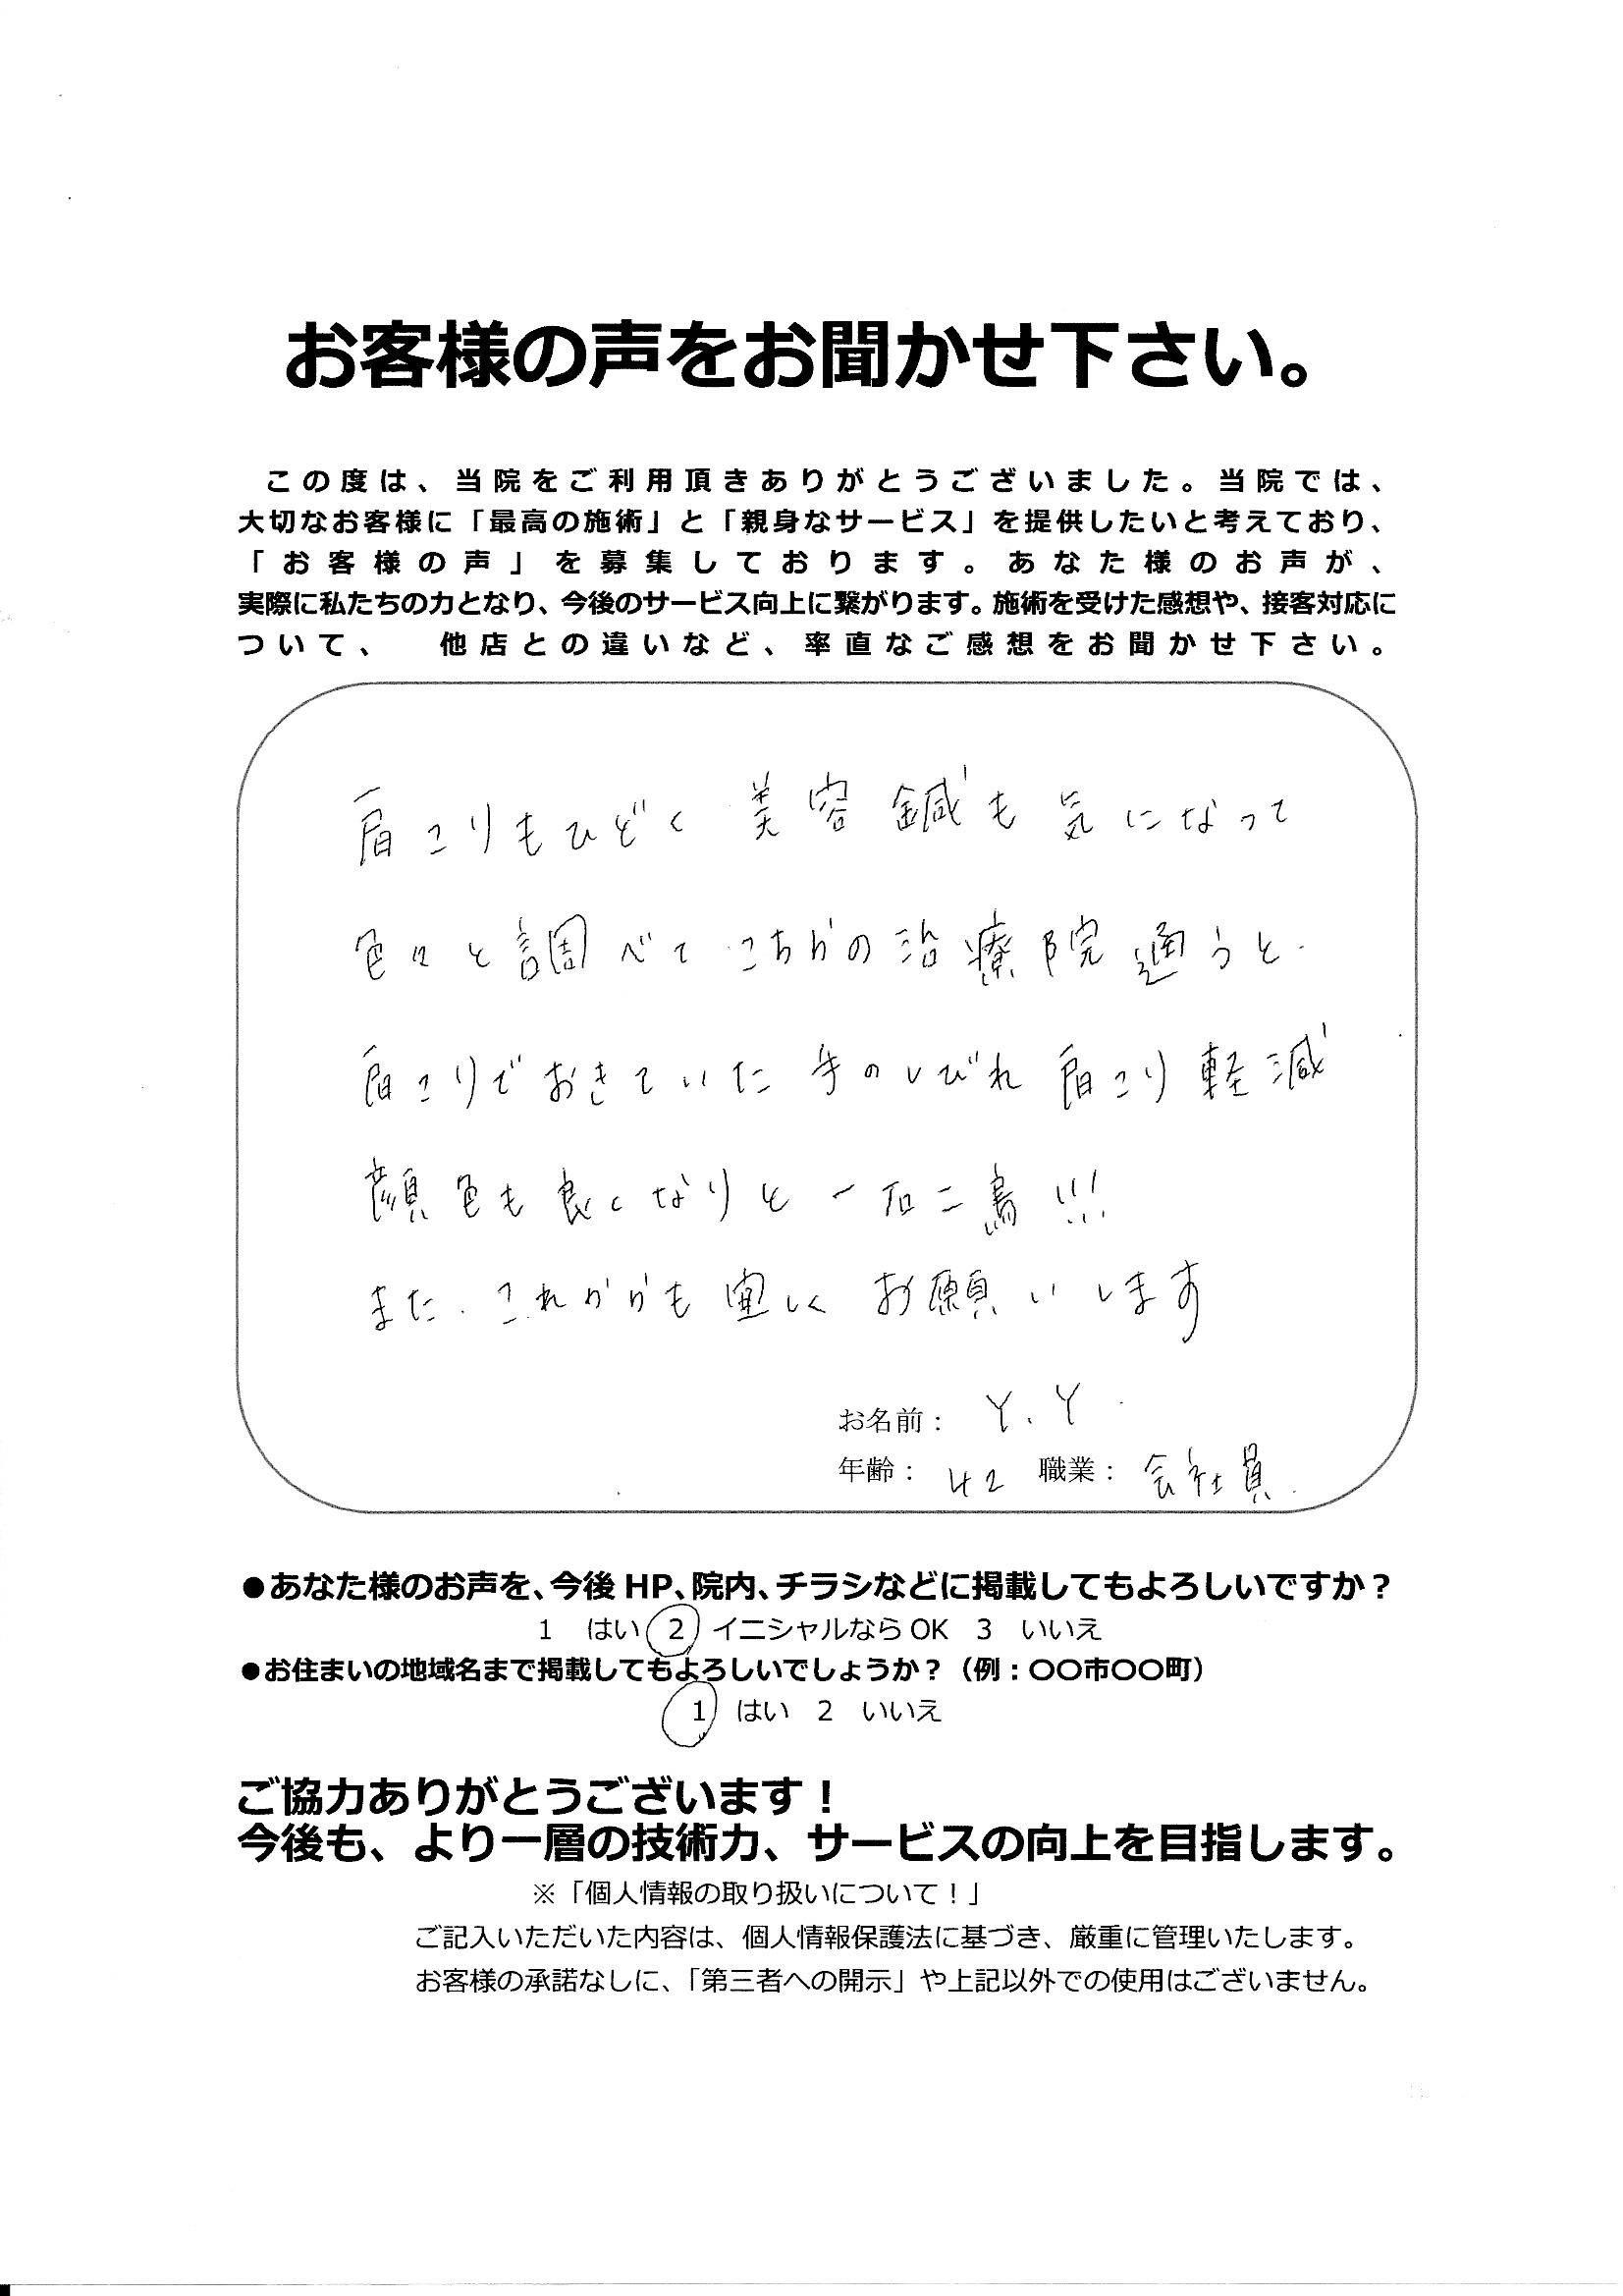 お客様の声をお聞かせ下さい。
この度は、当院をご利用頂きありがとうございました。当院では、
大切なお客様に「最高の施術」と「親身なサービス」を提供したいと考えており、
「お客様の声」を募集しております。あなた様のお声が、
実際に私たちの力となり、今後のサービス向上に繋がります。施術を受けた感想や、接客対応に
ついて、 他店との違いなど、率直なご感想をお聞かせ下さい。
肩こりもひどく 美容鍼も気になって
色々と調べて こちらの治療院通うと、
肩こりでおきていた 手のしびれ 肩こり 軽減
顔色も良くなりと 一石二鳥!!!
また、これからも宜しく お願いします
お名前: Y.Y
年齢: 42 職業: 会社員
●あなた様のお声を、今後 HP、院内、チラシなどに掲載してもよろしいですか?
1 はい 2 イニシャルなら OK 3 いいえ
●お住まいの地域名まで掲載してもよろしいでしょうか?(例:〇〇市〇〇町)
1 はい 2 いいえ
ご協力ありがとうございます!
今後も、より一層の技術力、サービスの向上を目指します。
※「個人情報の取り扱いについて!」
ご記入いただいた内容は、個人情報保護法に基づき、厳重に管理いたします。
お客様の承諾なしに、「第三者への開示」や上記以外での使用はございません。